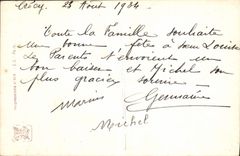 Crécy, 23 Aout 1934
Toute la Famille souhaite
une bonne fête à sœur Louise
Les Parents t'envoient un
bon baiser et Michel son
plus gracieux sourire
Marius Germaine
Michel